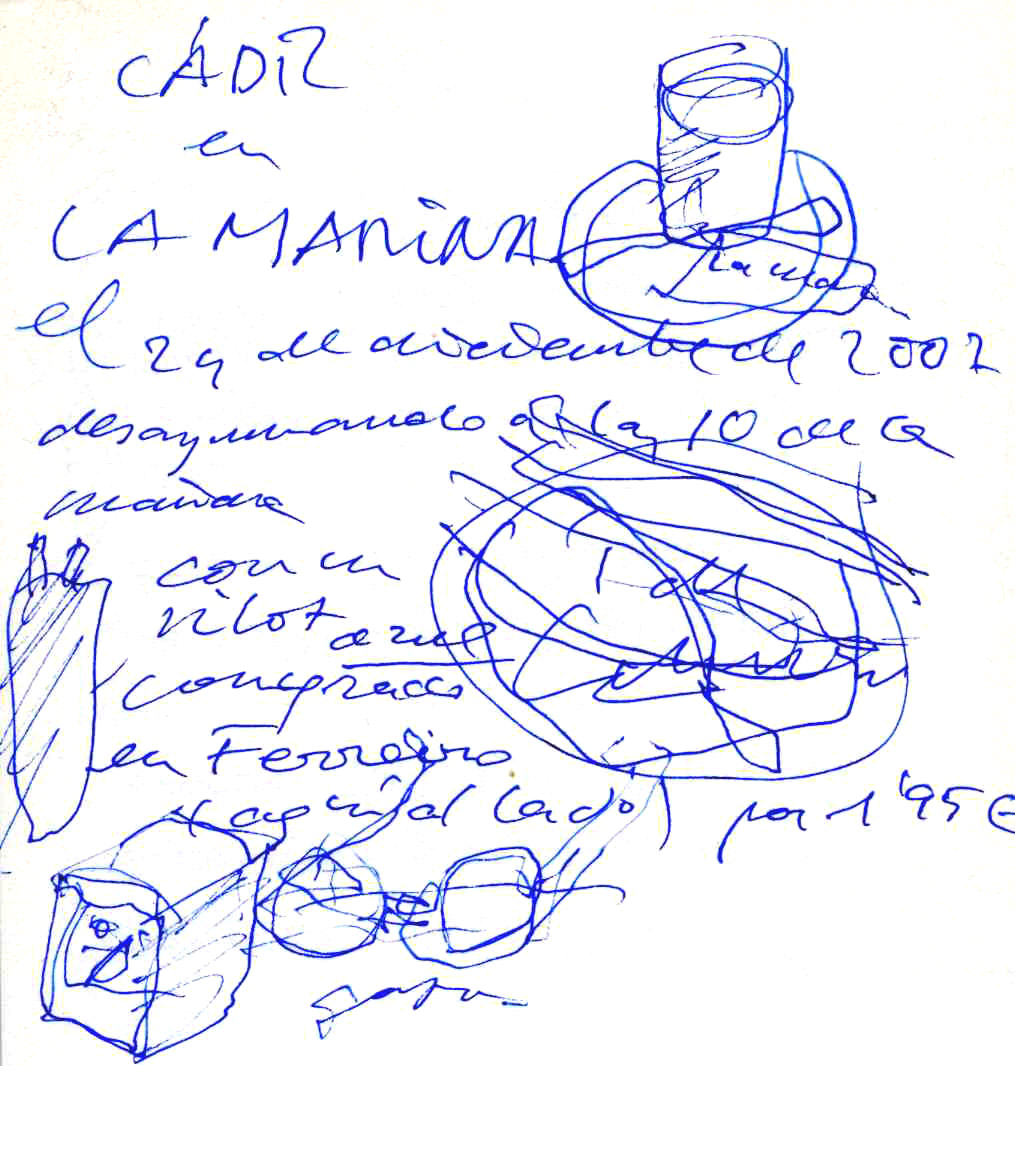 CÁDIZ
en
LA MARINA
el 29 de diciembre de 2002
desayunando a las 10 de la
mañana
con un
pilot azul
comprado
en Ferreiro
aquí al lado por 1'95 €
gafas